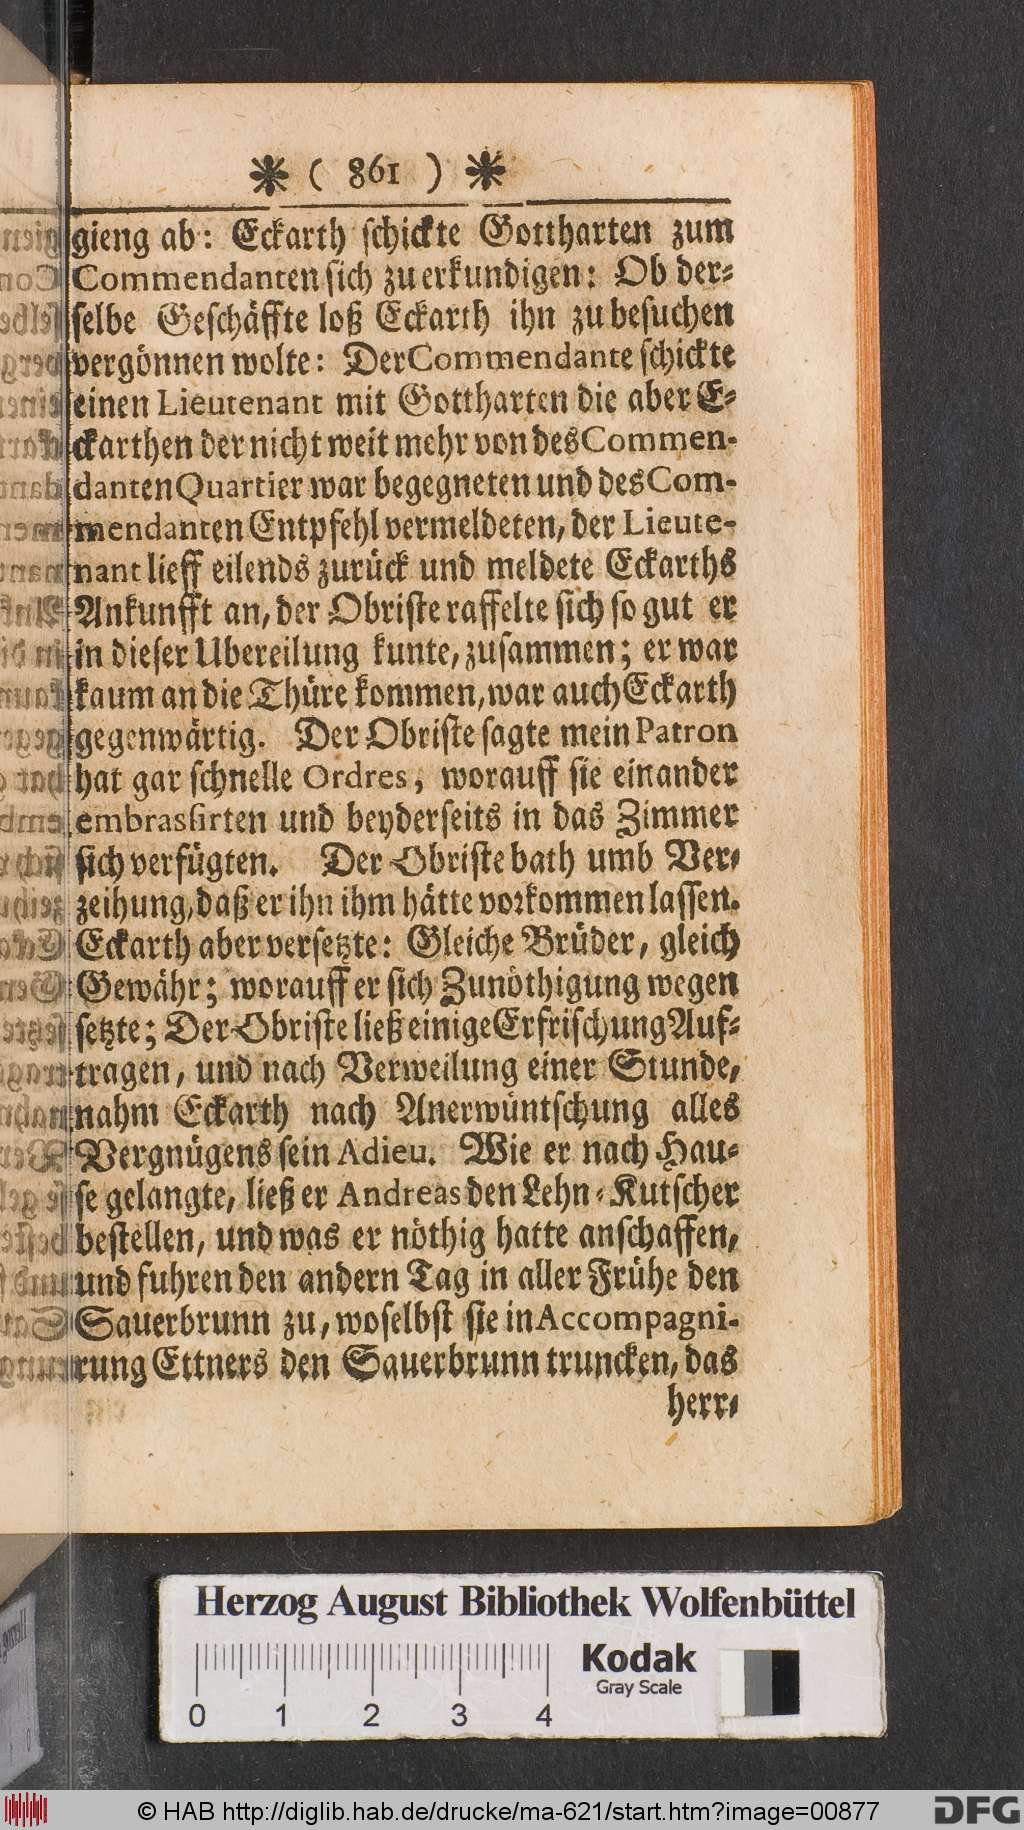 ❋ ( 861 ) ❋
gieng ab: Eckarth schickte Gottharten zum
Commendanten sich zu erkundigen: Ob der-
selbe Geschäffte loß Eckarth ihn zu besuchen
vergönnen wolte: Der Commendante schickte
einen Lieutenant mit Gottharten die aber E-
ckarthen der nicht weit mehr von des Commen-
danten Quartier war begegneten und des Com-
mendanten Entpfehl vermeldeten, der Lieute-
nant lieff eilends zurück und meldete Eckarths
Ankunfft an, der Obriste raffelte sich so gut er
in dieser Ubereilung kunte, zusammen; er war
kaum an die Thüre kommen, war auch Eckarth
gegenwärtig. Der Obriste sagte mein Patron
hat gar schnelle Ordres, worauff sie einander
embrassirten und beyderseits in das Zimmer
sich verfügten. Der Obriste bath umb Ver-
zeihung, daß er ihn ihm hätte vorkommen lassen.
Eckarth aber versetzte: Gleiche Brüder, gleich
Gewähr; worauff er sich Zunöthigung wegen
setzte; Der Obriste ließ einige Erfrischung Auf-
tragen, und nach Verweilung einer Stunde,
nahm Eckarth nach Anerwüntschung alles
Vergnügens sein Adieu. Wie er nach Hau-
se gelangte, ließ er Andreas den Lehn-Kutscher
bestellen, und was er nöthig hatte anschaffen,
und fuhren den andern Tag in aller Frühe den
Sauerbrunn zu, woselbst sie in Accompagni-
rung Ettners den Sauerbrunn truncken, das
herr-
Herzog August Bibliothek Wolfenbüttel
Kodak
Gray Scale
0 1 2 3 4
© HAB http://diglib.hab.de/drucke/ma-621/start.htm?image=00877
DFG